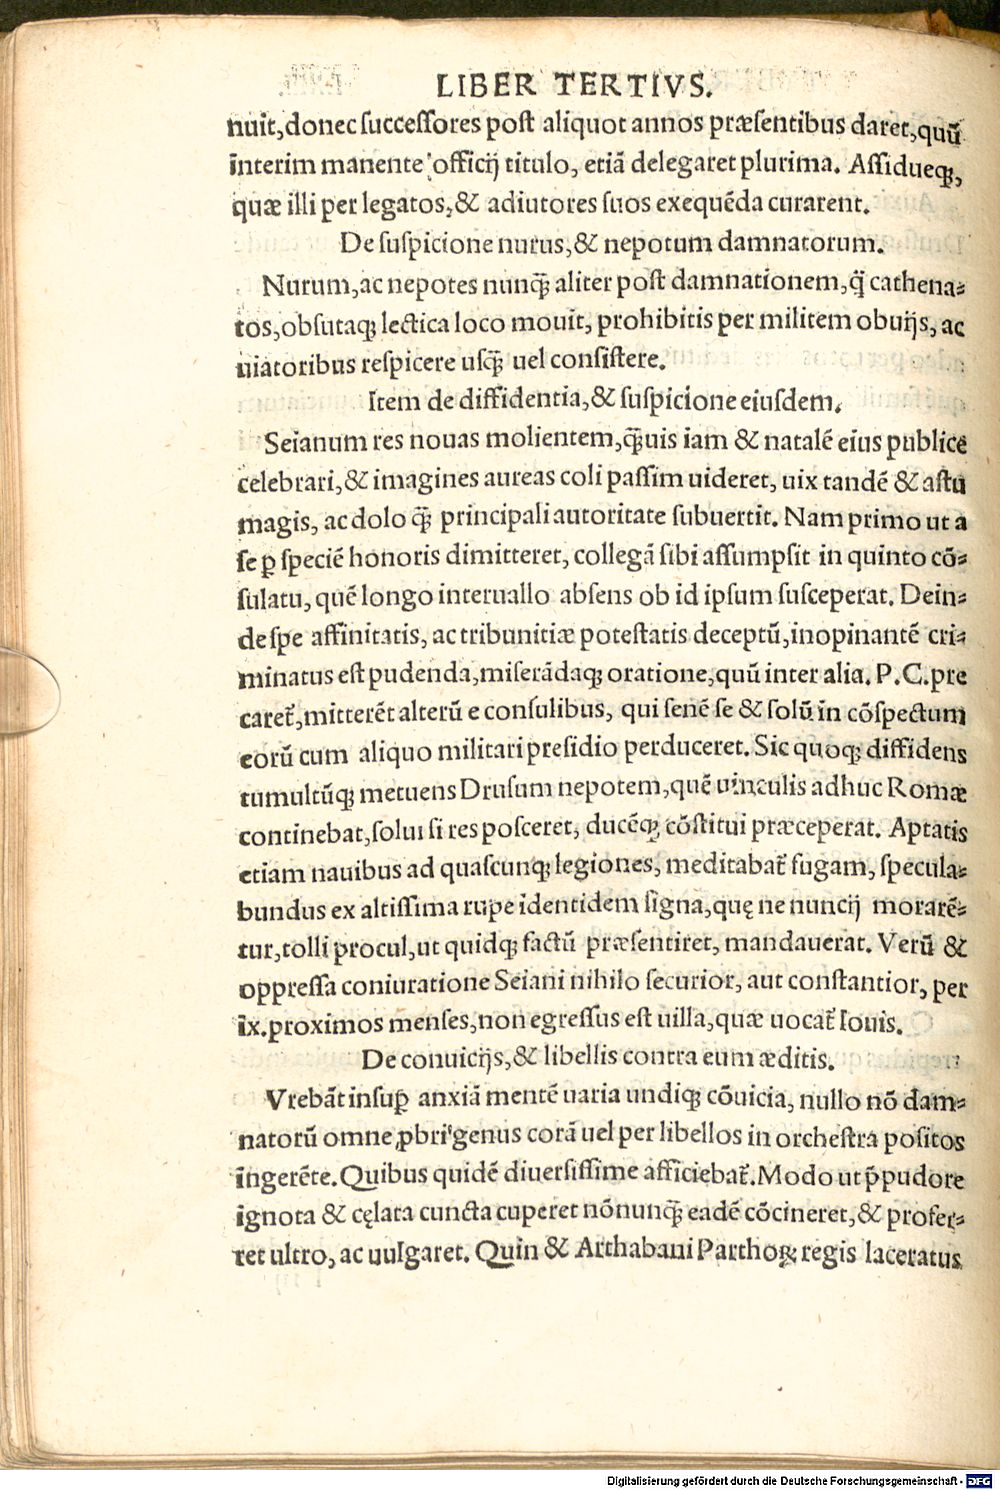 LIBER TERTIVS.
nuit,donec successores post aliquot annos præsentibus daret,quū
interim manente officij titulo, etiā delegaret plurima. Assidueq́;,
quæ illi per legatos,& adiutores suos exequēda curarent.
De suspicione nurus,& nepotum damnatorum.
Nurum,ac nepotes nunq̄ aliter post damnationem,q̄ cathena-
tos,obsutaq; lectica loco mouit, prohibitis per militem obuijs, ac
uiatoribus respicere usq̄ uel consistere.
Item de diffidentia,& suspicione eiusdem.
Seianum res nouas molientem,q̄uis iam & natalē eius publice
celebrari,& imagines aureas coli passim uideret, uix tandē & astu
magis, ac dolo q̄ principali autoritate subuertit. Nam primo ut a
se ꝑ speciē honoris dimitteret, collegā sibi assumpsit in quinto cō-
sulatu, quē longo interuallo absens ob id ipsum susceperat. Dein-
de spe affinitatis, ac tribunitiæ potestatis deceptū,inopinantē cri-
minatus est pudenda,miserādaq; oratione,quū inter alia. P.C.pre
caret᷑,mitterēt alterū e consulibus, qui senē se & solū in cōspectum
eorū cum aliquo militari presidio perduceret. Sic quoq; diffidens
tumultūq; metuens Drusum nepotem,quē uinculis adhuc Romæ
continebat,solui si res posceret, ducēq; cōstitui præceperat. Aptatis
etiam nauibus ad quascunq; legiones, meditabat᷑ fugam, specula-
bundus ex altissima rupe identidem signa,quę ne nuncij morarē-
tur,tolli procul,ut quidq; factū præsentiret, mandauerat. Verū &
oppressa coniuratione Seiani nihilo securior, aut constantior, per
ix.proximos menses,non egressus est uilla,quæ uocat᷑ Iouis.
De conuicijs,& libellis contra eum æditis.
Vrebāt insuꝑ anxiā mentē uaria undiq; cōuicia, nullo nō dam-
natorū omne ꝓbri genus corā uel per libellos in orchestra positos
ingerēte. Quibus quidē diuersissime afficiebat᷑. Modo ut p̄ pudore
ignota & cęlata cuncta cuperet nōnunq̄ eadē cōcineret,& profer-
ret ultro, ac uulgaret. Quin & Arthabani Parthoꝝ regis laceratus
Digitalisierung gefördert durch die Deutsche Forschungsgemeinschaft - DFG